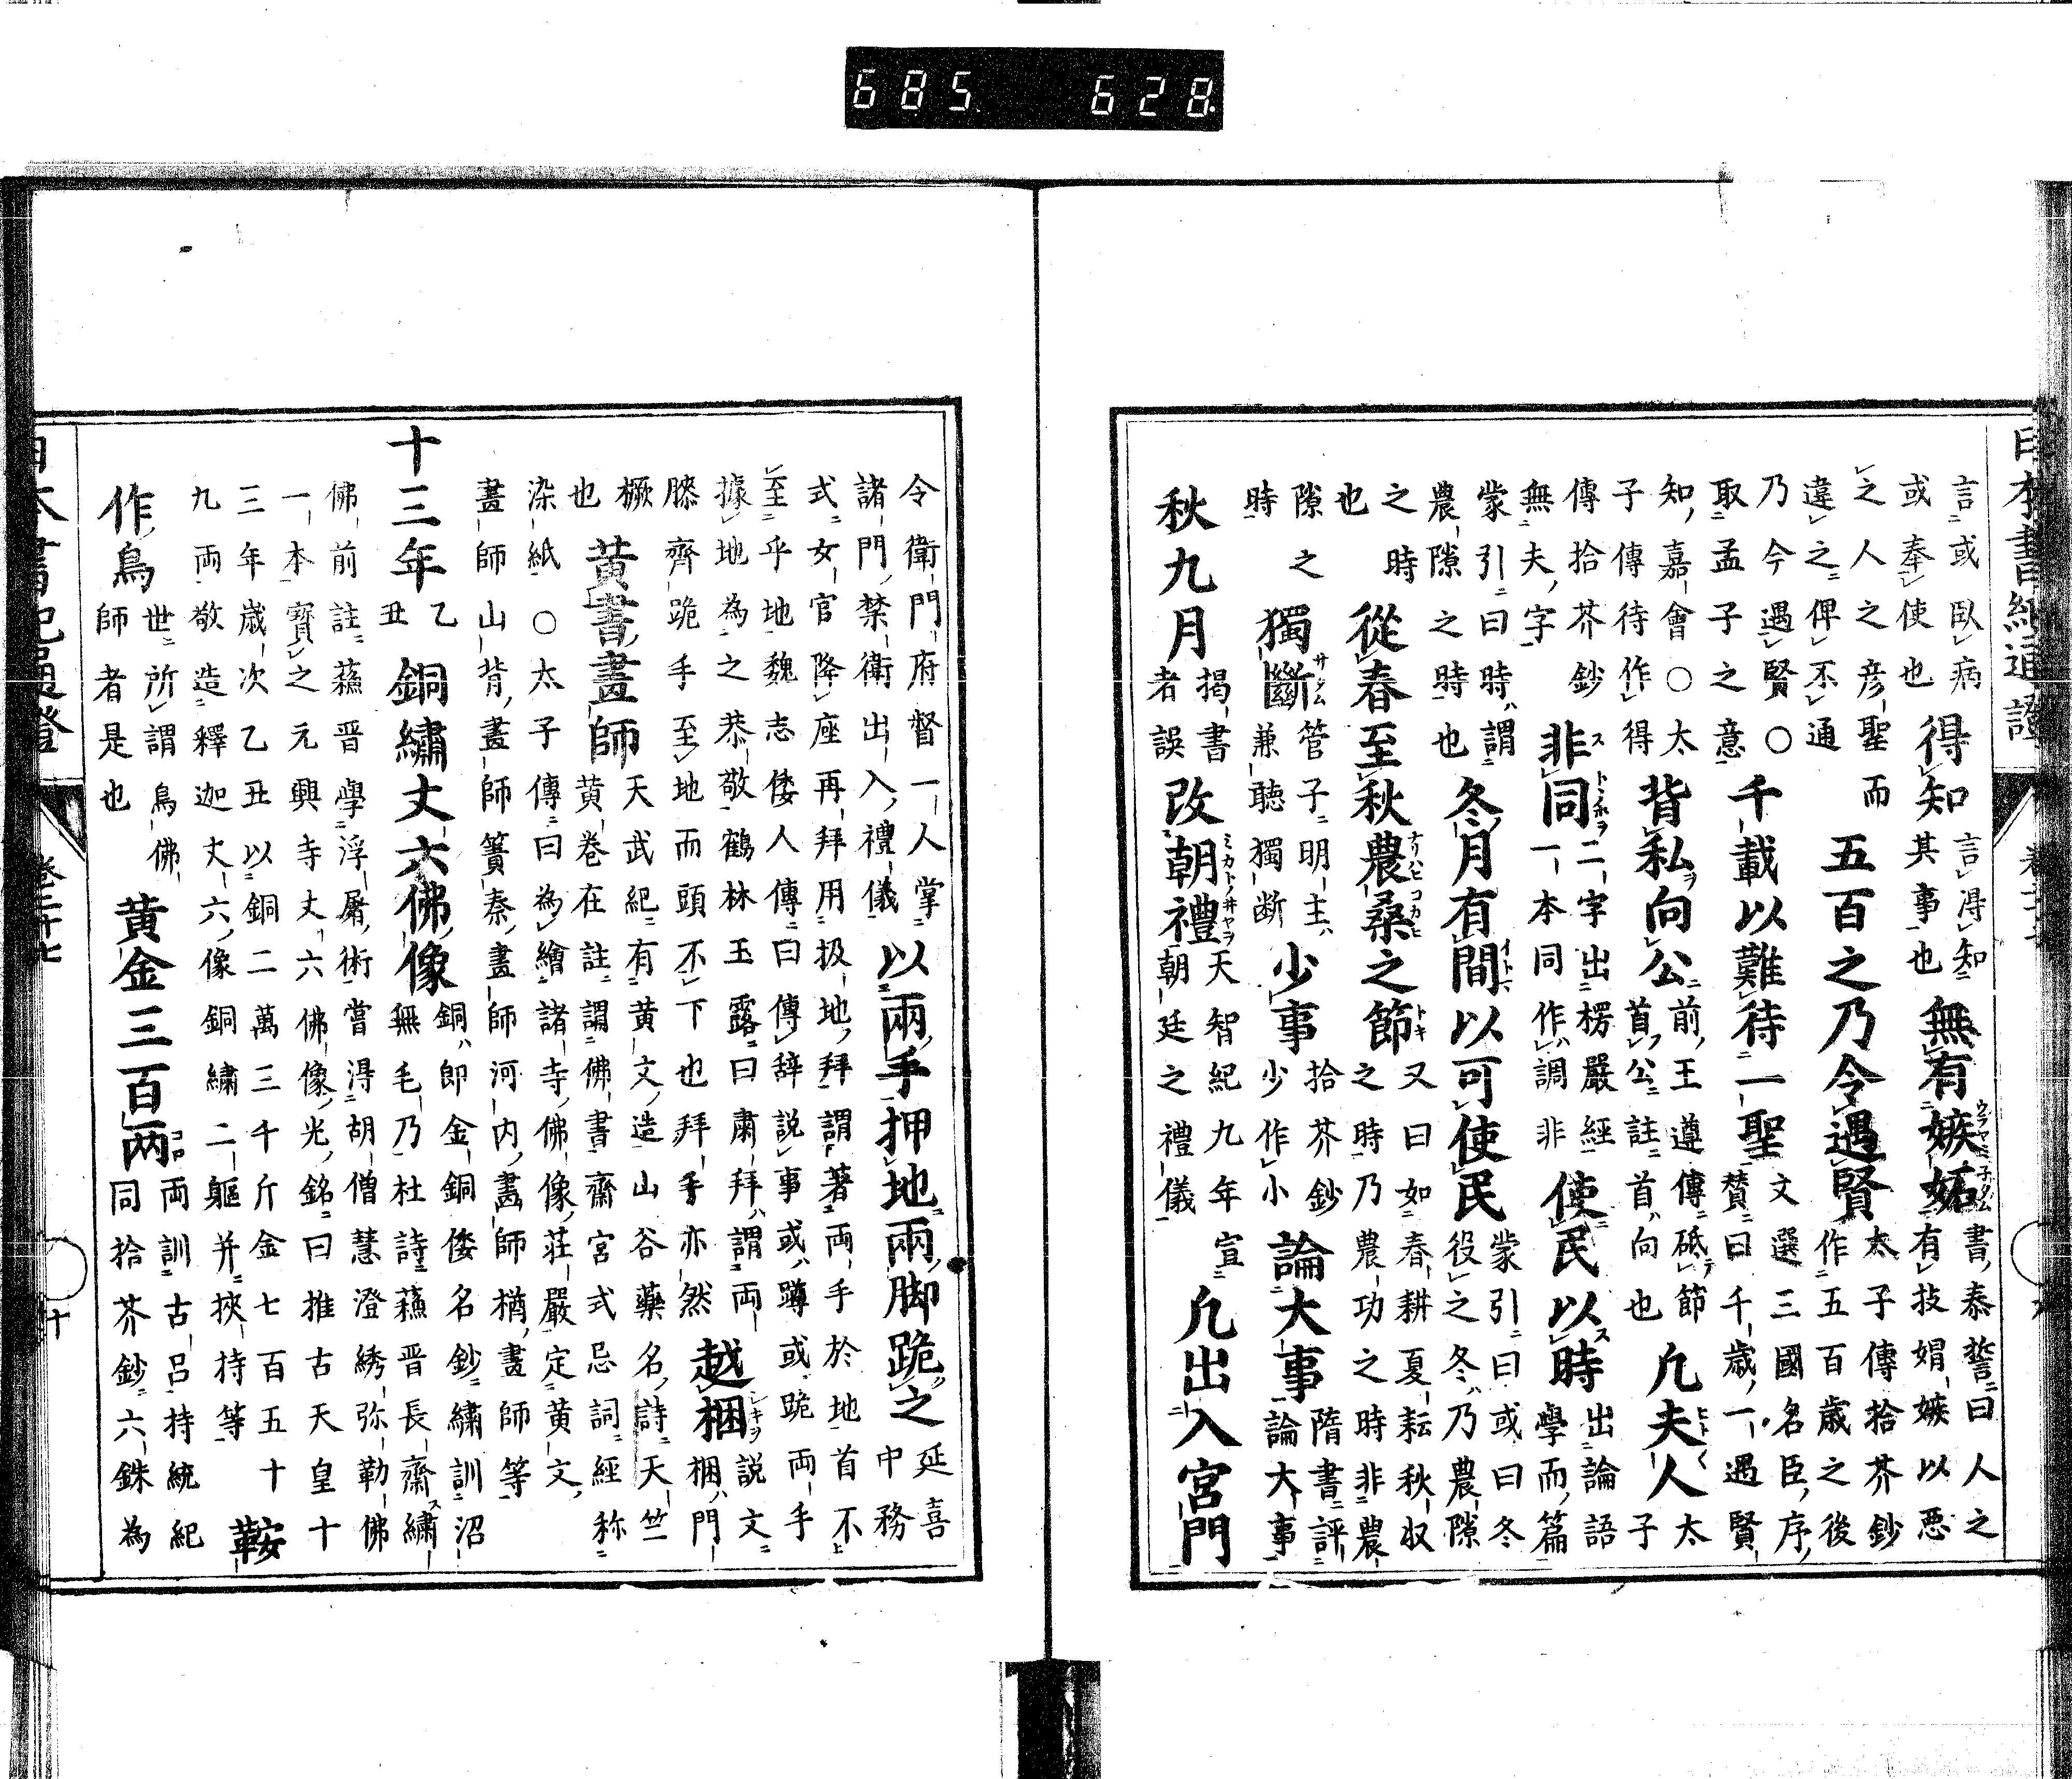 言或臥病
或奉使也
得知
言得知
其事也
無有嫉妬
書泰誓曰人之
有技媢嫉以惡
之人之彦聖而
違之俾不通
五百之乃今遇賢
太子傳拾芥鈔
作五百歲之後
乃今遇賢○
取孟子之意
千載以難待一聖
文選三國名臣序
賛曰千歲一遇賢
知嘉會○太
子傳待作得
背私向公
前王遵傳砥節
首公註首向也
凢夫人
太
子
傳拾芥鈔
無夫字
非同
二字出楞嚴經
一本同作調非
使民以時
出論語
學而篇
蒙引曰時謂
農隙之時也
冬月有間以可使民
蒙引曰或曰冬
役之冬乃農隙
之時
也
從春至秋農桑之節
又曰如春耕夏耘秋収
之時乃農功之時非農
隙之
時
獨斷
管子明主
兼聽獨断
少事
拾芥鈔
少作小
論大事
隋書評
論大事
秋九月
揭書
者誤
改朝禮
天智紀九年宣
朝廷之禮儀
凢出入宮門
令衛門府督一人掌
諸門禁衛出入禮儀
以兩手押地兩脚跪之
延喜
中務
式女官降座再拜用扱地拜謂著両手於地首不
至乎地魏志倭人傳曰傳辞説事或蹲或跪両手
據地為之恭敬鶴林玉露曰肅拜謂両
膝齊跪手至地而頭不下也拜手亦然
越梱
説文
梱門
橛
也
黄書畫師
天武紀有黄文造山谷藥名詩天竺
黄卷在註謂佛書齋宮式忌詞経称
染紙○太子傳曰為繪諸寺佛像莊嚴定黄文
畫師山背畫師簀秦畫師河内畫師楢畫師等
十三年
乙
丑
銅繡丈六佛像
銅即金銅倭名鈔繡訓沼
無毛乃杜詩蘓晋長齋繡
佛前註蘓晋學浮屠術嘗得胡僧慧澄綉弥勒佛
一本寶之元興寺丈六佛像光銘曰推古天皇十
三年歲次乙丑以銅二萬三千斤金七百五十
九両敬造釋迦丈六像銅繡二軀并挾持等
鞍
作鳥
世所謂鳥佛
師者是也
黄金三百两
両訓古呂持統紀
同拾芥鈔六銖為
十
685 628